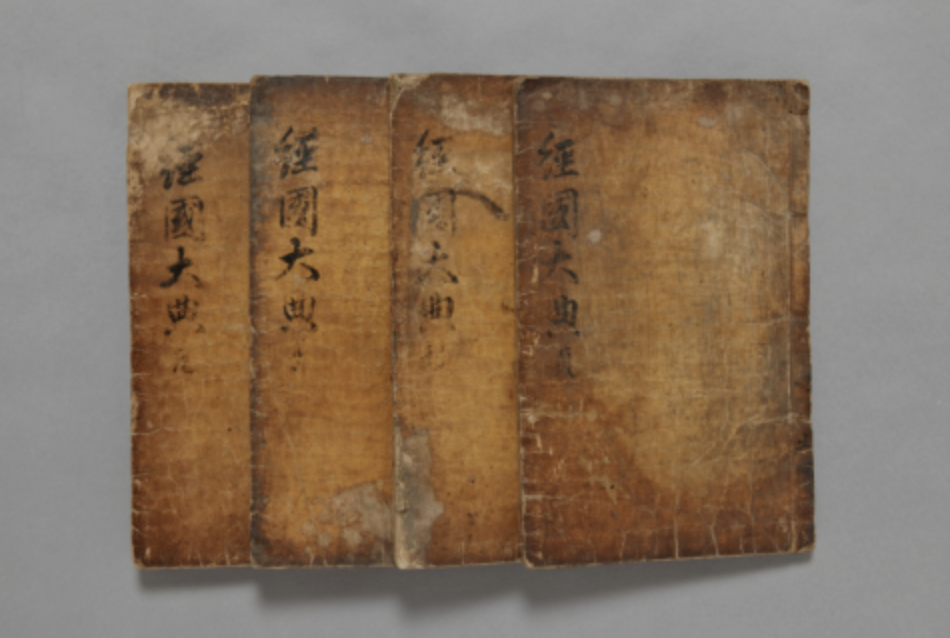 經國大典 元
經國大典
經國大典 利
經國大典 貞